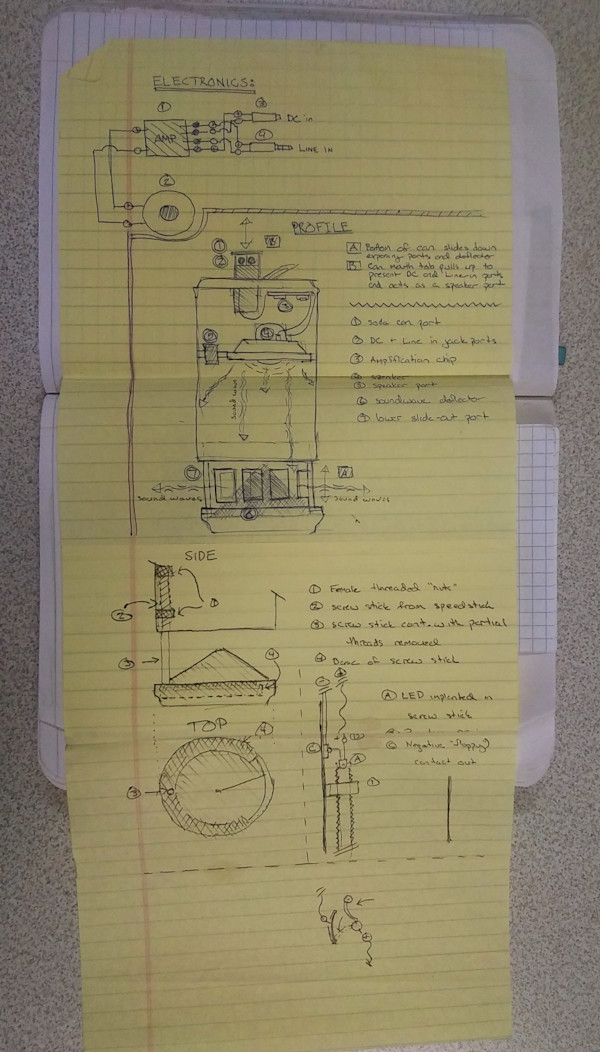 ELECTRONICS:
①
③
DC in
AMP
④
LINE IN
②
PROFILE
① B
②
A Bottom of can slides down
exposing ports and deflector
B Can mouth tab pulls up to
present DC and Line-in ports
and acts as a speaker port
① soda can port
② DC + Line in jack ports
③ Amplification chip
⑤ speaker port
⑥ soundwave deflector
⑦ lower slide-out port
③
④
⑤
sound wave
⑦
A
sound waves
sound waves
⑥
SIDE
①
②
③
④
① Female threaded "nuts"
② screw stick from speedstick
③ screw stick cont. with partial
threads removed
④ Base of screw stick
TOP
④
③
A LED implanted in
screw stick
C Negative "floppy"
contact out
C
A
①